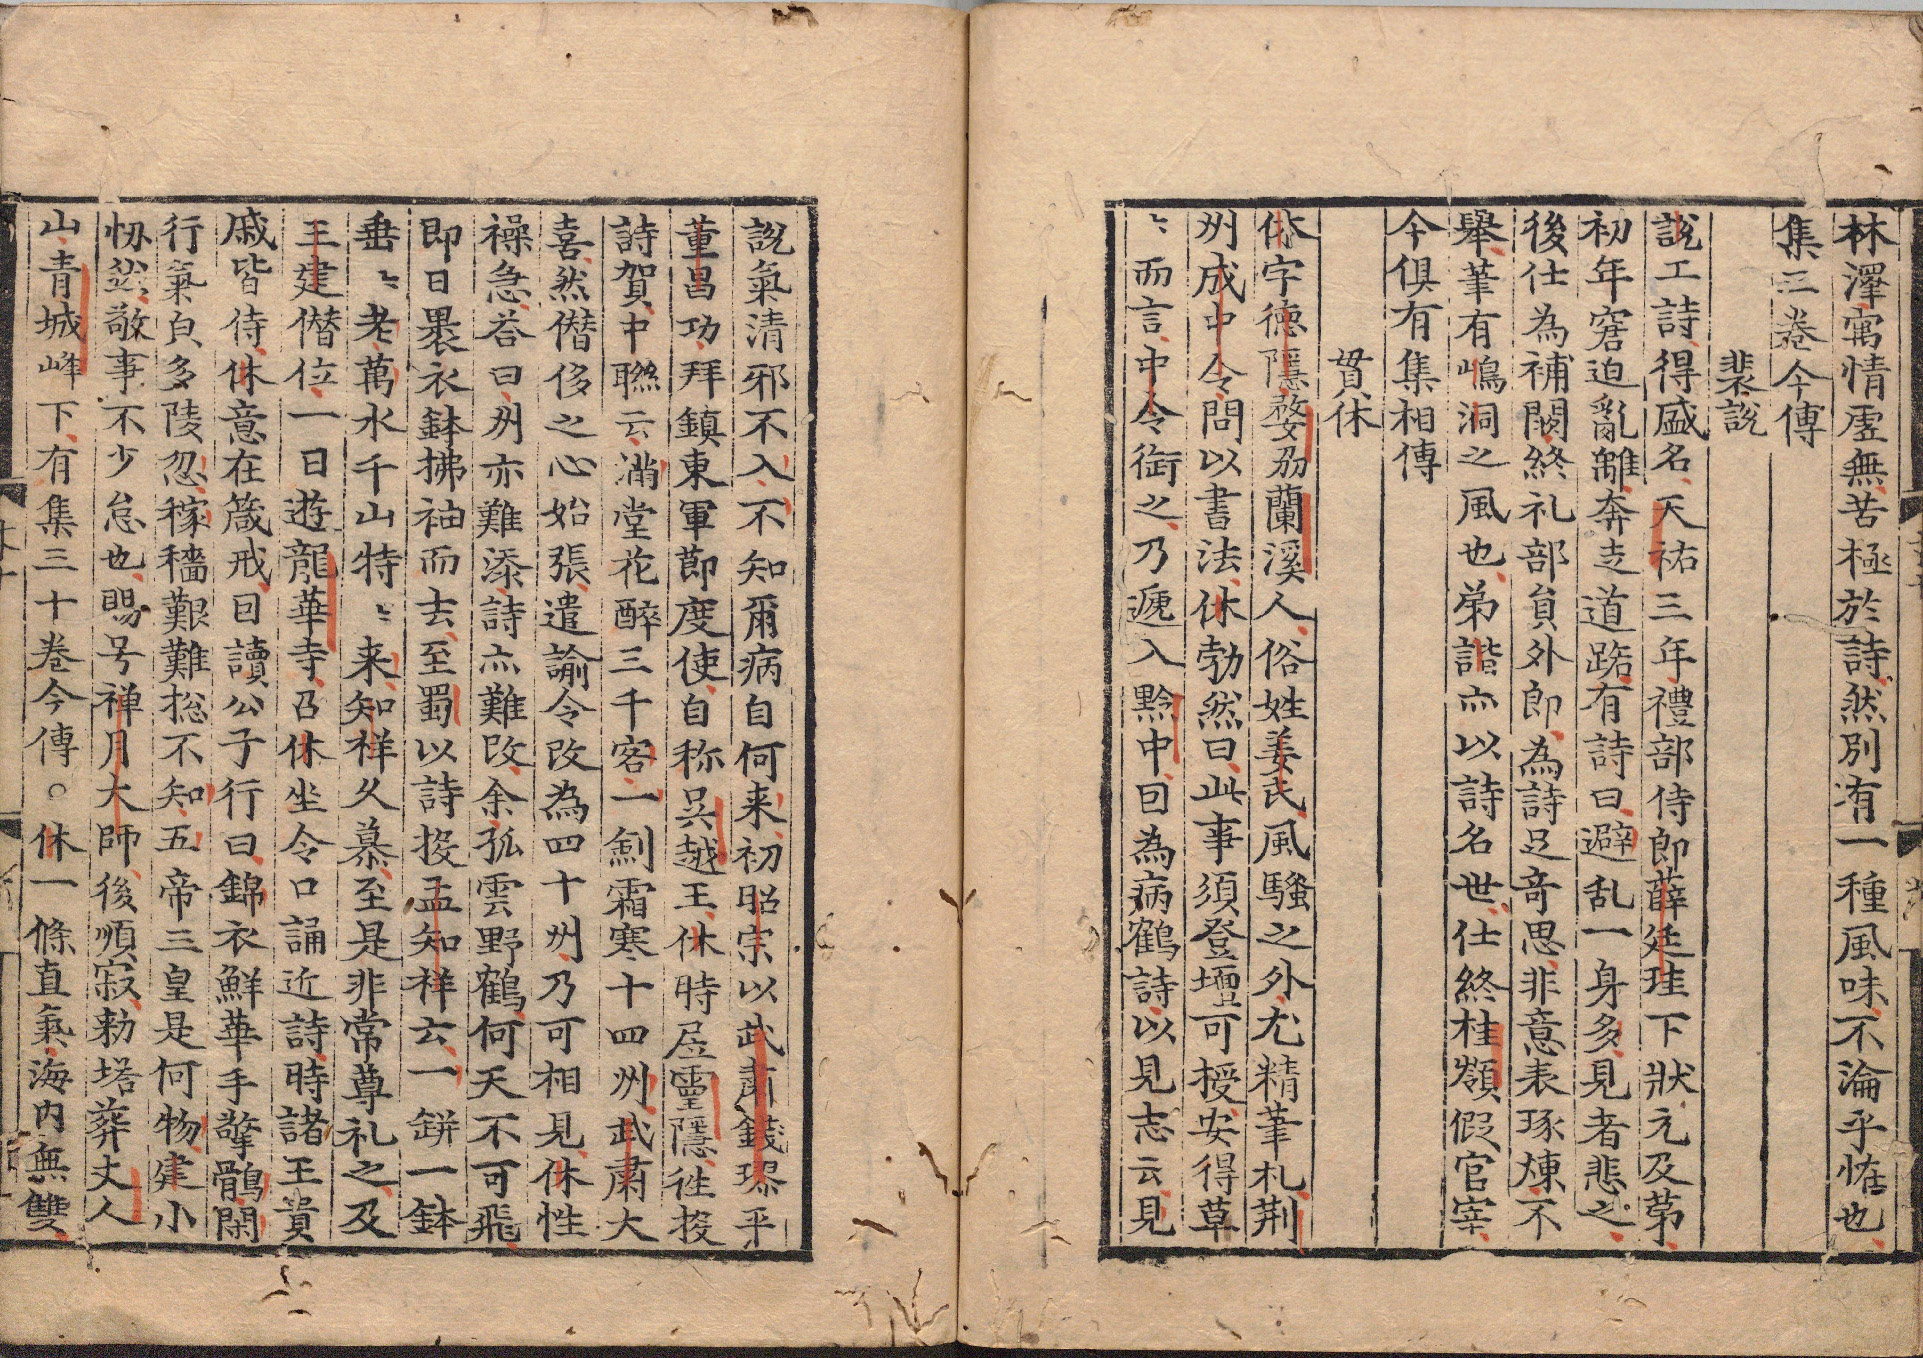 林澤寓情虛無苦極於詩然別有一種風味不淪乎恠也
集三巻今傳
裴說
說工詩得盛名天祐三年禮部侍郎薛廷珪下狀元及苐
初年窘迫亂離奔走道路有詩曰避乱一身多見者悲之
後仕為補闕終礼部負外郎為詩足奇思非意表琢煉不
舉筆有嶋洞之風也弟諧亦以詩名世仕終桂嶺假官宰
今俱有集相傳
貫休
休字德隱婺州蘭溪人俗姓姜氏風騷之外尤精筆札荆
州成中令問以書法休勃然曰此事須登壇可授安得草
〻而言中令銜之乃遞入黔中因為病鶴詩以見志云見
說氣清邪不入不知爾病自何来初昭宗以武肅錢璆平
董昌功拜鎮東軍節度使自称吳越王休時居靈隱徃投
詩賀中聯云滿堂花醉三千客一劍霜寒十四州武肅大
喜然僭侈之心始張遣諭令改為四十州乃可相見休性
褊急荅曰州亦難添詩亦難改余孤雲野鶴何天不可飛
即日褁衣鉢拂袖而去至蜀以詩投孟知祥云一缾一鉢
垂〻老萬水千山特〻来知祥久慕至是非常尊礼之及
王建僭位一日遊龍華寺召休坐令口誦近詩時諸王貴
戚皆侍休意在箴戒因讀公子行曰錦衣鮮華手擎鶻閑
行氣皃多陵忽稼穡艱難捴不知五帝三皇是何物建小
忸然敬事不少怠也賜号禅月大師後順寂敕塔葬丈人
山青城峰下有集三十巻今傳○休一條直氣海内無雙